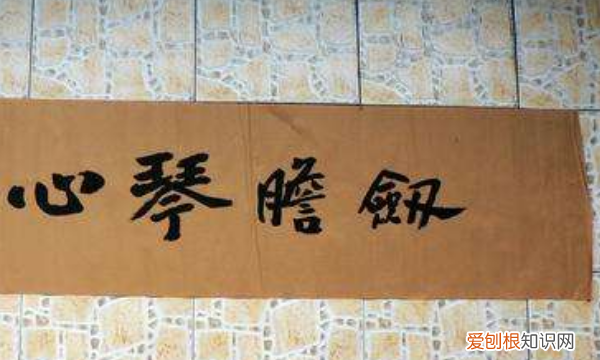 劔膽琴心
爱刨根知识网